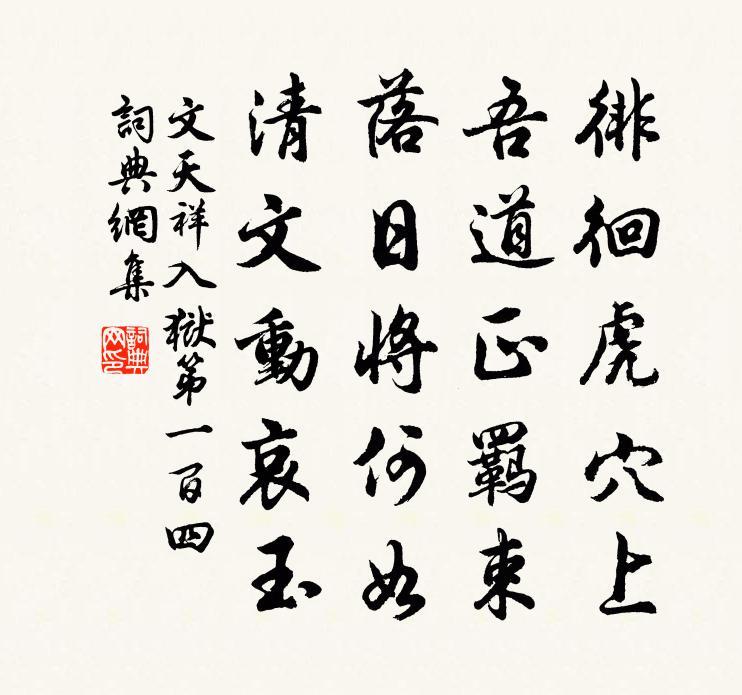 徘徊虎穴上
吾道正羈束
落日將何如
清文動哀玉
文天祥入獄第一百四
詞典網集
詞典網印